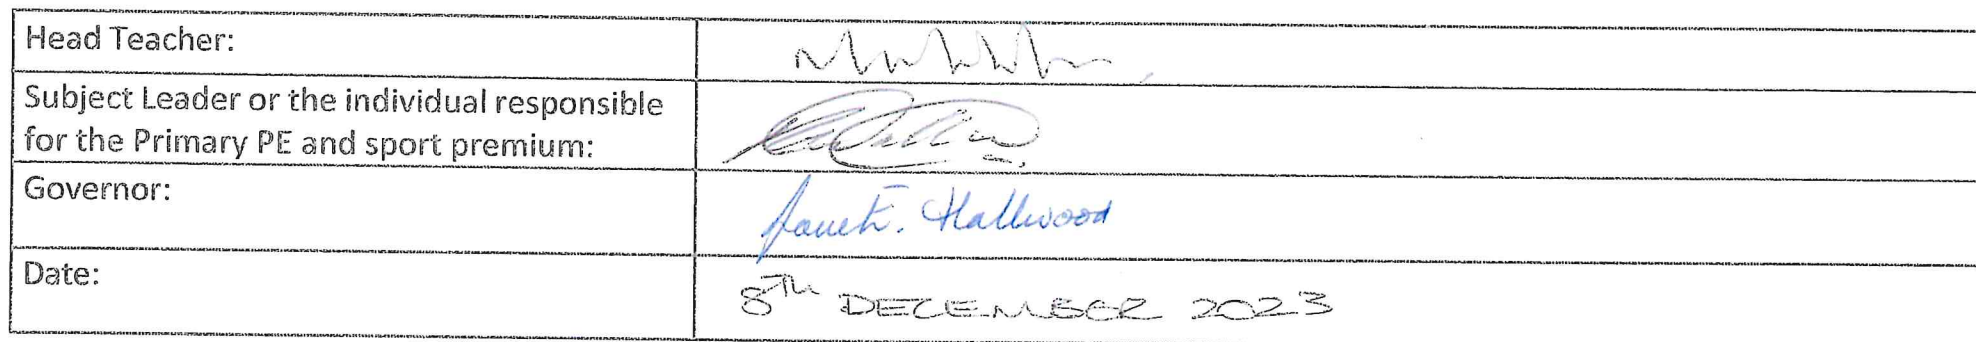 Head Teacher:
Subject Leader or the individual responsible
for the Primary PE and sport premium:
Governor:
Hallwood
Date:
8Th DECEMBER 2023